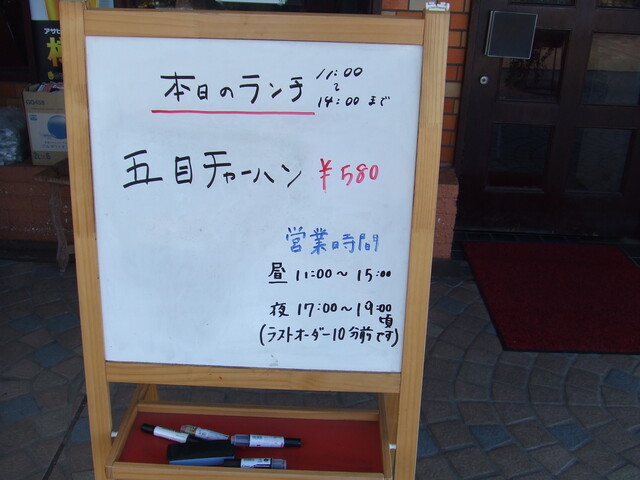 本日のランチ 11:00
〜
14:00 まで
五目チャーハン ¥580
営業時間
昼 11:00〜15:00
夜 17:00〜19:00
頃
(ラストオーダー10分前です)
アサヒ